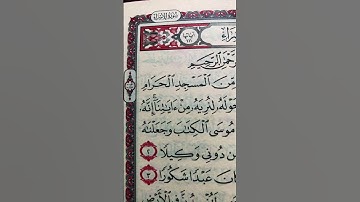 سُورَةُ الإِسْرَاءِ
رَاء
حْمَٰنِ الرَّحِيمِ
مِّنَ ٱلْمَسْجِدِ ٱلْحَرَامِ
حَوْلَهُۥ لِنُرِيَهُۥ مِنْ ءَايَٰتِنَآ إِنَّهُۥ
مُوسَى ٱلْكِتَٰبَ وَجَعَلْنَٰهُ
ن دُونِي وَكِيلًا ٢
انَ عَبْدًا شَكُورًا ٣
فِي ٱلْأَرْضِ